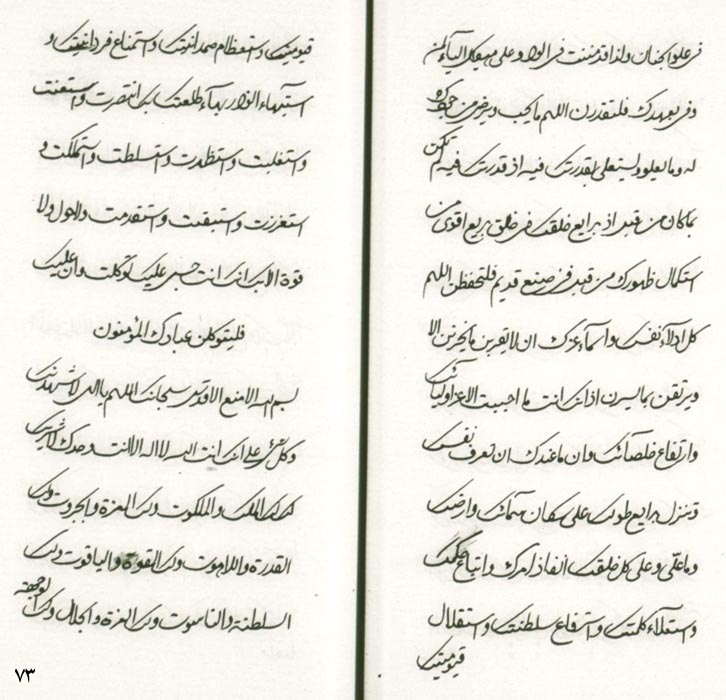 فی علو الجنان ولذا قد مننت فی الواد وعلی هیکل الیاء لمن
وفی بعهدک فلتقدرن اللهم ما یحب ویرضی من
له وما یعلو ولیستعلی بقدرتک فیه اذ قدرتک فیه لم تکن
بما کان من قبل اذ بدایع خلقک فی خلق بدیع اقوی من
استکمال ظهورک من قبل فی صنع قدیم فلتحفظن اللهم
کل ادلاء نفسک واسماء عزک ان لا یقربن ما یحزنن الا
ویرتقن بما یسرن اذ انک انت ما احببت الا عز اولیائک
وارتفاع خلصائک وان ما عندک ان تعرف نفسک
وتنزل بدایع طولک علی سکان سمائک وارضک
وما علی وعلی کل خلقک الا نفاذ امرک واتباع حکمک
واستعلاء کلمتک واسترفاع سلطنتک واستقلال
قیومیتک
قیومیتک واستعظام صمدانیتک واستمناع فردانیتک و
استبهاء انوار بهاء طلعتک بک انتصرت واستعنت
واستغلبت واستظهرت واستسلطت واستملکت و
استعززت واستبقت واستقدمت ولا حول ولا
قوة الا بک انک انت حسبی علیک توکلت وان علیک
فلیتوکلن عبادک المؤمنون
بسم الله الامنع الاقدس سبحانک اللهم یا الهی لاشهدنک
وکل شیء علی انک انت الله لا اله الا انت وحدک لا شریک
لک لک الملک والملکوت ولک العزة والجبروت ولک
القدرة واللاهوت ولک القوة والیاقوت ولک
السلطنة والناسوت ولک العزة والجلال ولک الوجهة
٧٣